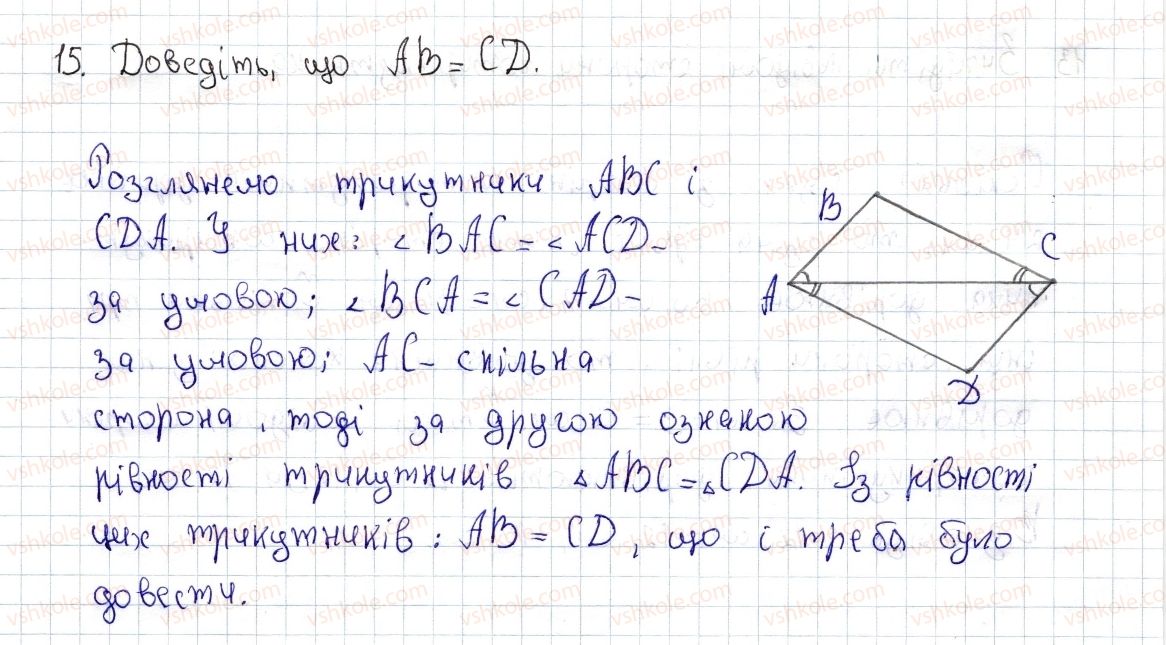 15. Доведіть, що AB = CD.
Розглянемо трикутники ABC і
CDA. У них: < BAC = < ACD –
за умовою; < BCA = < CAD –
за умовою; AC – спільна
сторона, тоді за другою ознакою
рівності трикутників △ABC = △CDA. Із рівності
цих трикутників: AB = CD, що і треба було
довести.
B
C
A
D
vshkole.com